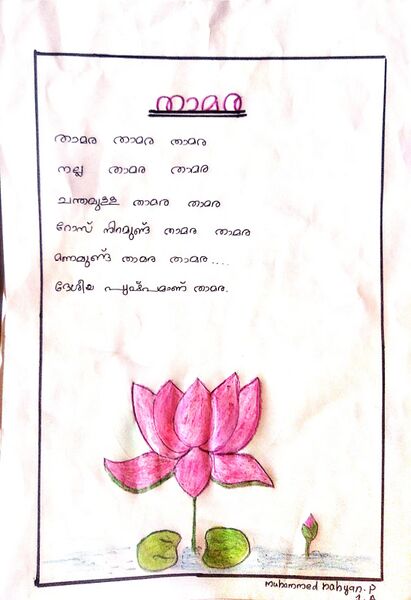 താമര
താമര താമര താമര
നല്ല താമര താമര
ചന്തമുള്ള താമര താമര
റോസ് നിറമുണ്ട് താമര താമര
മണമുണ്ട് താമര താമര....
ദേശീയ പുഷ്പമാണ് താമര.
muhammed nahyan. P
1. A